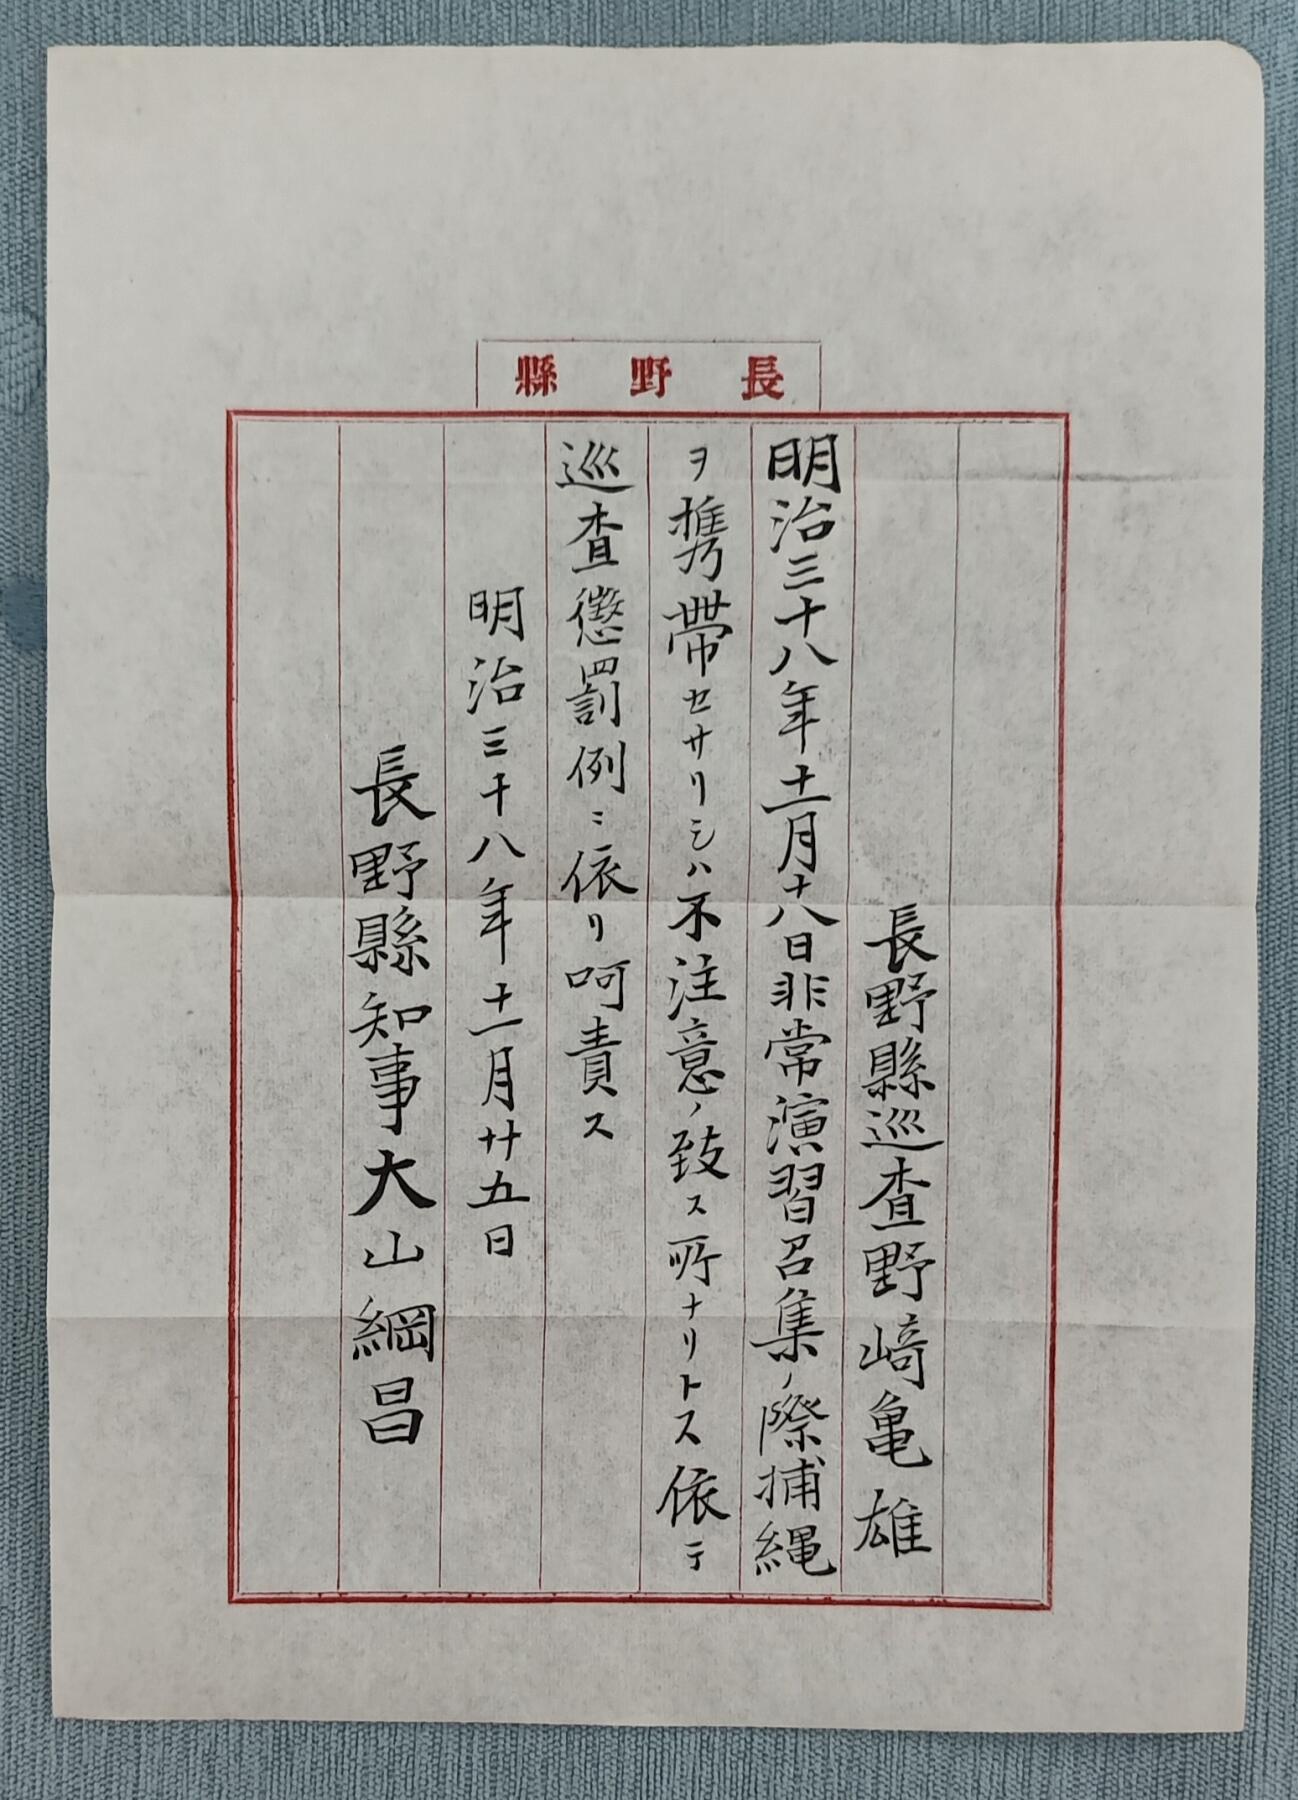 長野縣
長野縣巡査野﨑亀雄
明治三十八年十一月十八日非常演習召集ノ際捕縄
ヲ携帶セサリシハ不注意ノ致ス所ナリトス依テ
巡査懲罰例ニ依リ呵責ス
明治三十八年十一月廿五日
長野縣知事大山綱昌